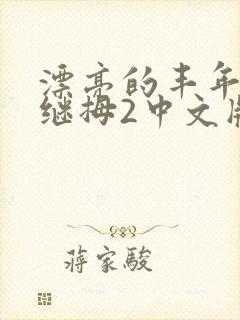 漂亮的丰年
继拇2中文版
蒋家駿